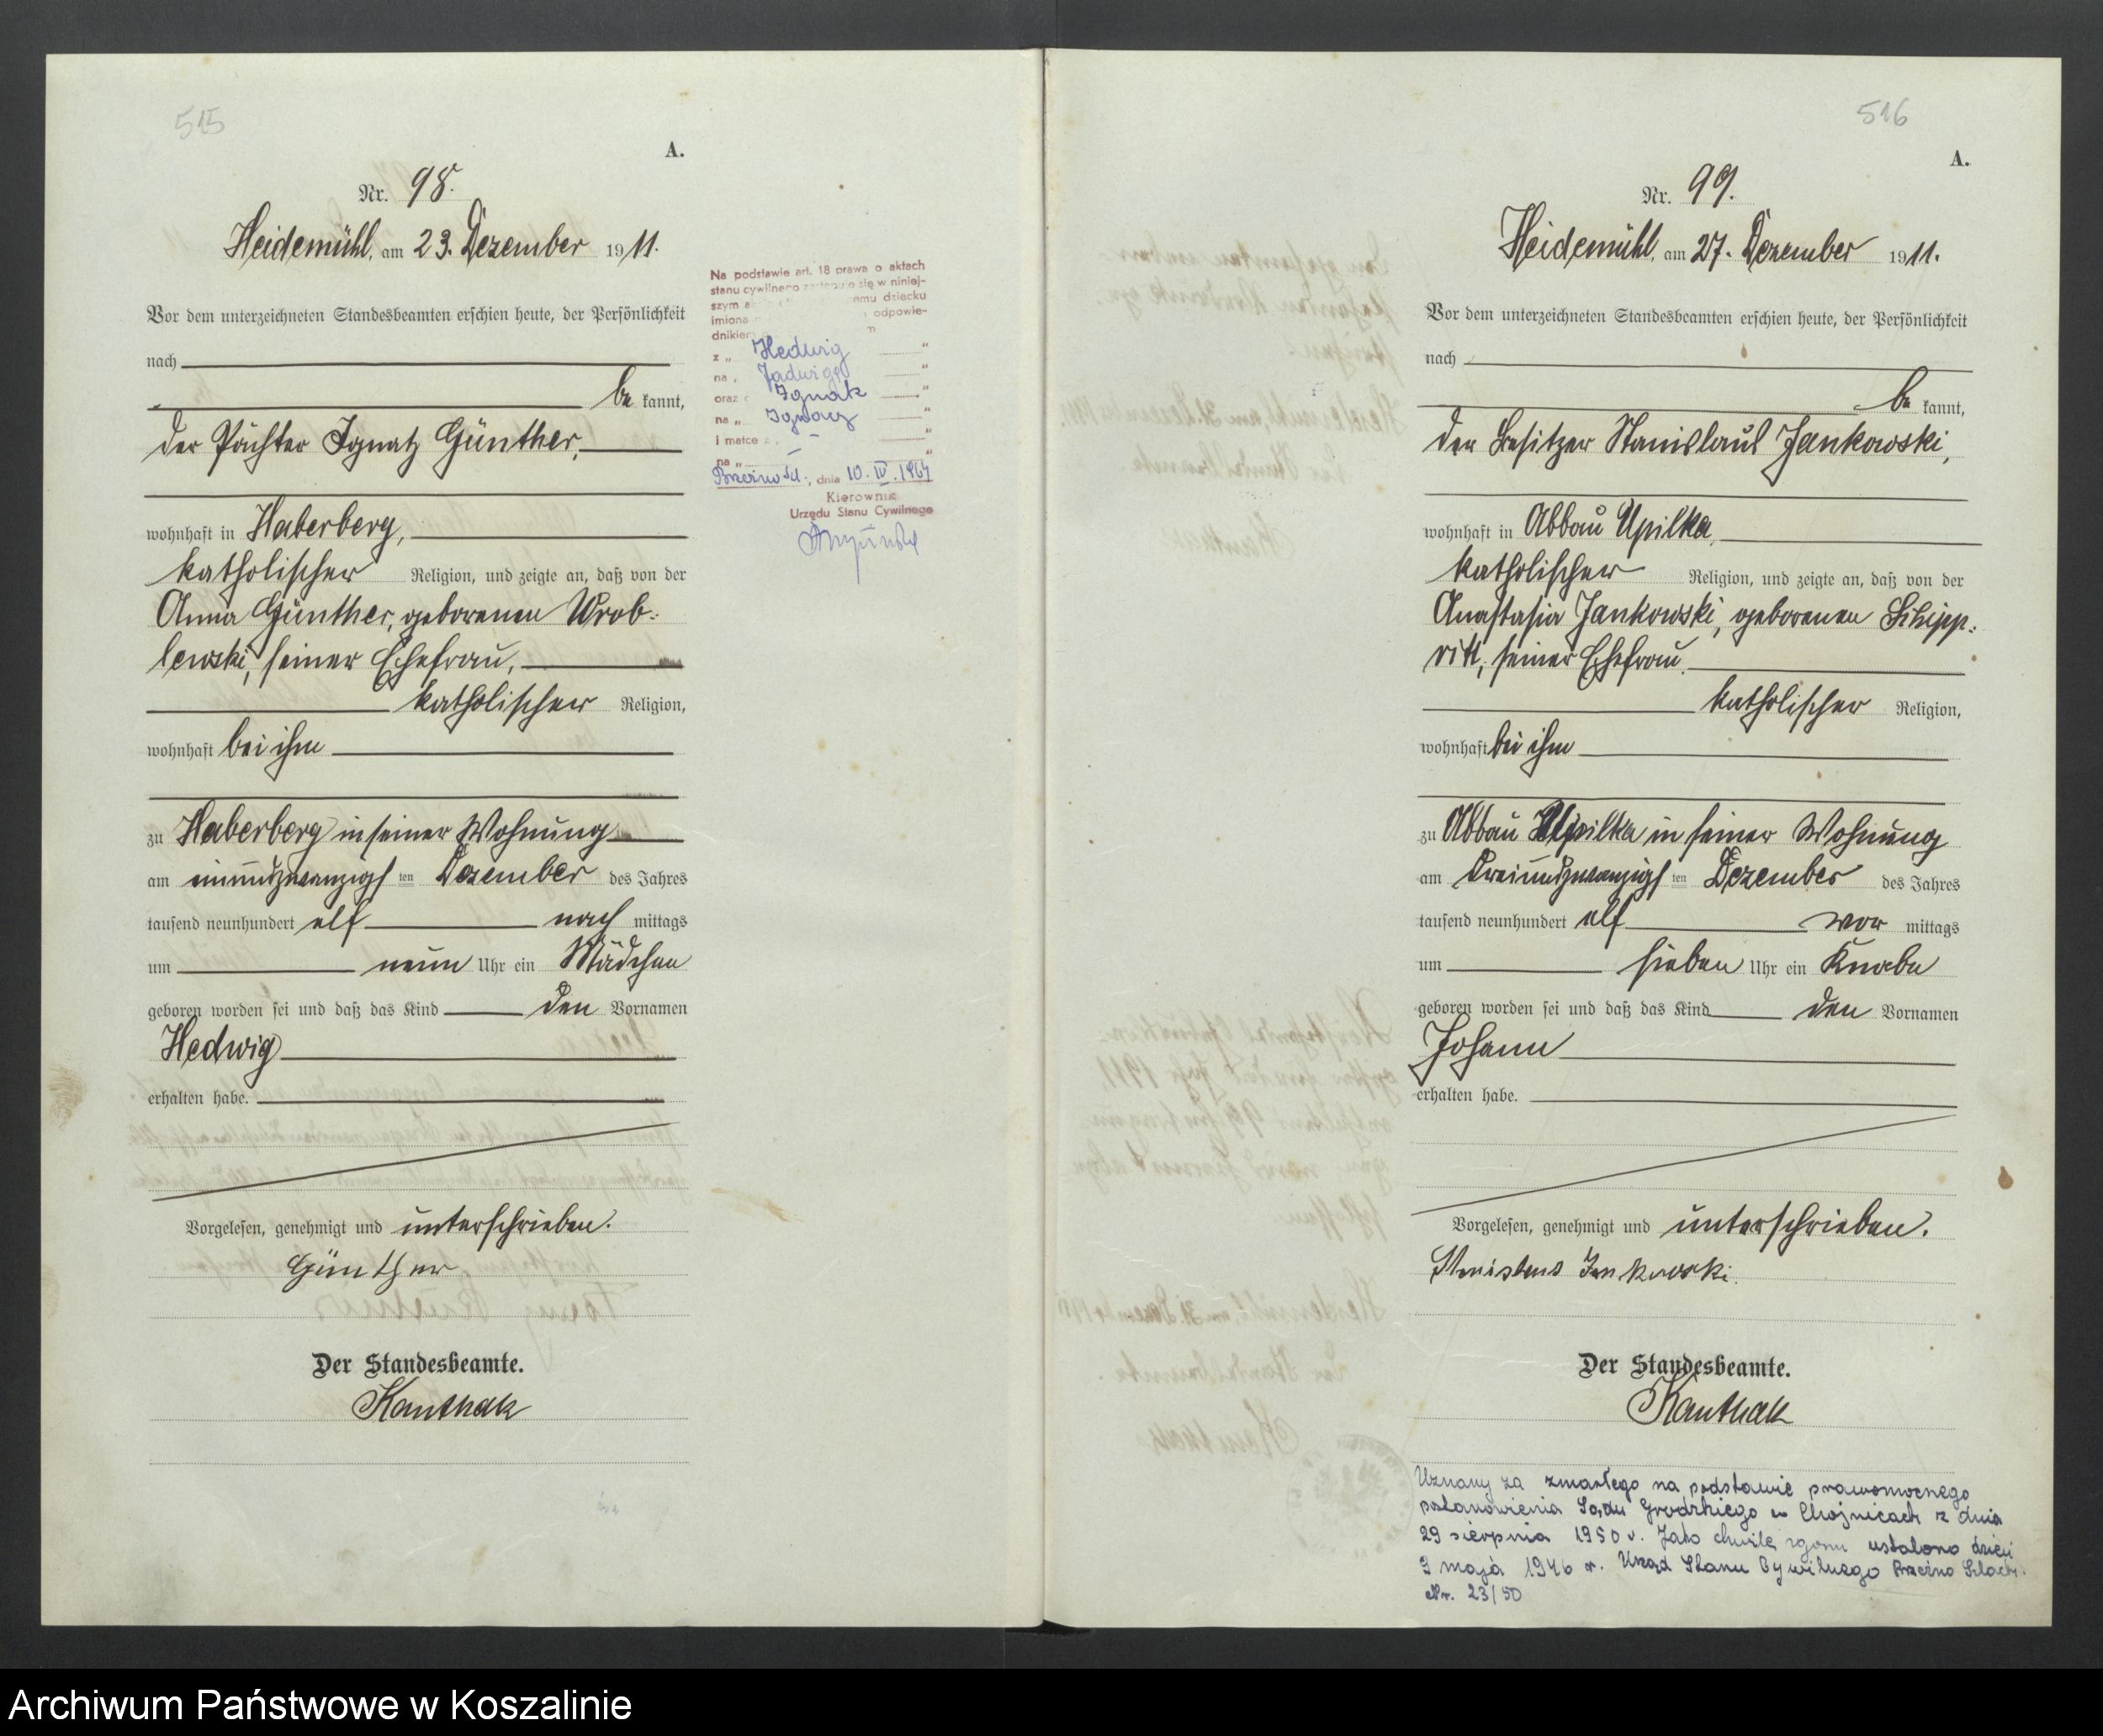 515
A.
Nr. 98.
Heidemühl, am 23. Dezember 1911.
Vor dem unterzeichneten Standesbeamten erschien heute, der Persönlichkeit
nach
be kannt,
der Pächter Ignatz Günther,
wohnhaft in Haberberg,
katholischer Religion, und zeigte an, daß von der
Anna Günther, geborenen Wrob-
lewski, seiner Ehefrau,
katholischer Religion,
wohnhaft bei ihm
zu Haberberg in seiner Wohnung
am einundzwanzigs ten Dezember des Jahres
tausend neunhundert elf nach mittags
um neun Uhr ein Mädchen
geboren worden sei und daß das Kind den Vornamen
Hedwig
erhalten habe.
Vorgelesen, genehmigt und unterschrieben.
Günther
Der Standesbeamte.
Kanthak
Na podstawie art. 18 prawa o aktach
stanu cywilnego zastępuje się w niniej-
szym dziecku
imiona odpowie-
dnikiem
z „ Hedwig "
na „ Jadwiga "
oraz Ignak "
na „ Ignacy "
i matce "
na „ "
dnia 10. IV. 1967
Kierownik
Urzędu Stanu Cywilnego
516
A.
Nr. 99.
Heidemühl, am 27. Dezember 1911.
Vor dem unterzeichneten Standesbeamten erschien heute, der Persönlichkeit
nach
be kannt,
der Besitzer Stanislaus Jankowski,
wohnhaft in Abbau Upilka
katholischer Religion, und zeigte an, daß von der
Anastasia Jankowski, geborenen
seiner Ehefrau
katholischer Religion,
wohnhaft bei ihm
zu Abbau Upilka in seiner Wohnung
am dreiundzwanzigs ten Dezember des Jahres
tausend neunhundert elf vor mittags
um sieben Uhr ein Knabe
geboren worden sei und daß das Kind den Vornamen
Johann
erhalten habe.
Vorgelesen, genehmigt und unterschrieben.
Stanislaus Jankowski.
Der Standesbeamte.
Kanthak
Uznany za zmarłego na podstawie prawomocnego
postanowienia Sądu Grodzkiego w Chojnicach z dnia
29 sierpnia 1950 r. Jako chwilę zgonu ustalono dzień
9 maja 1946 r. Urząd Stanu Cywilnego Brzeźno Szlach.
Nr. 23/50
Archiwum Państwowe w Koszalinie